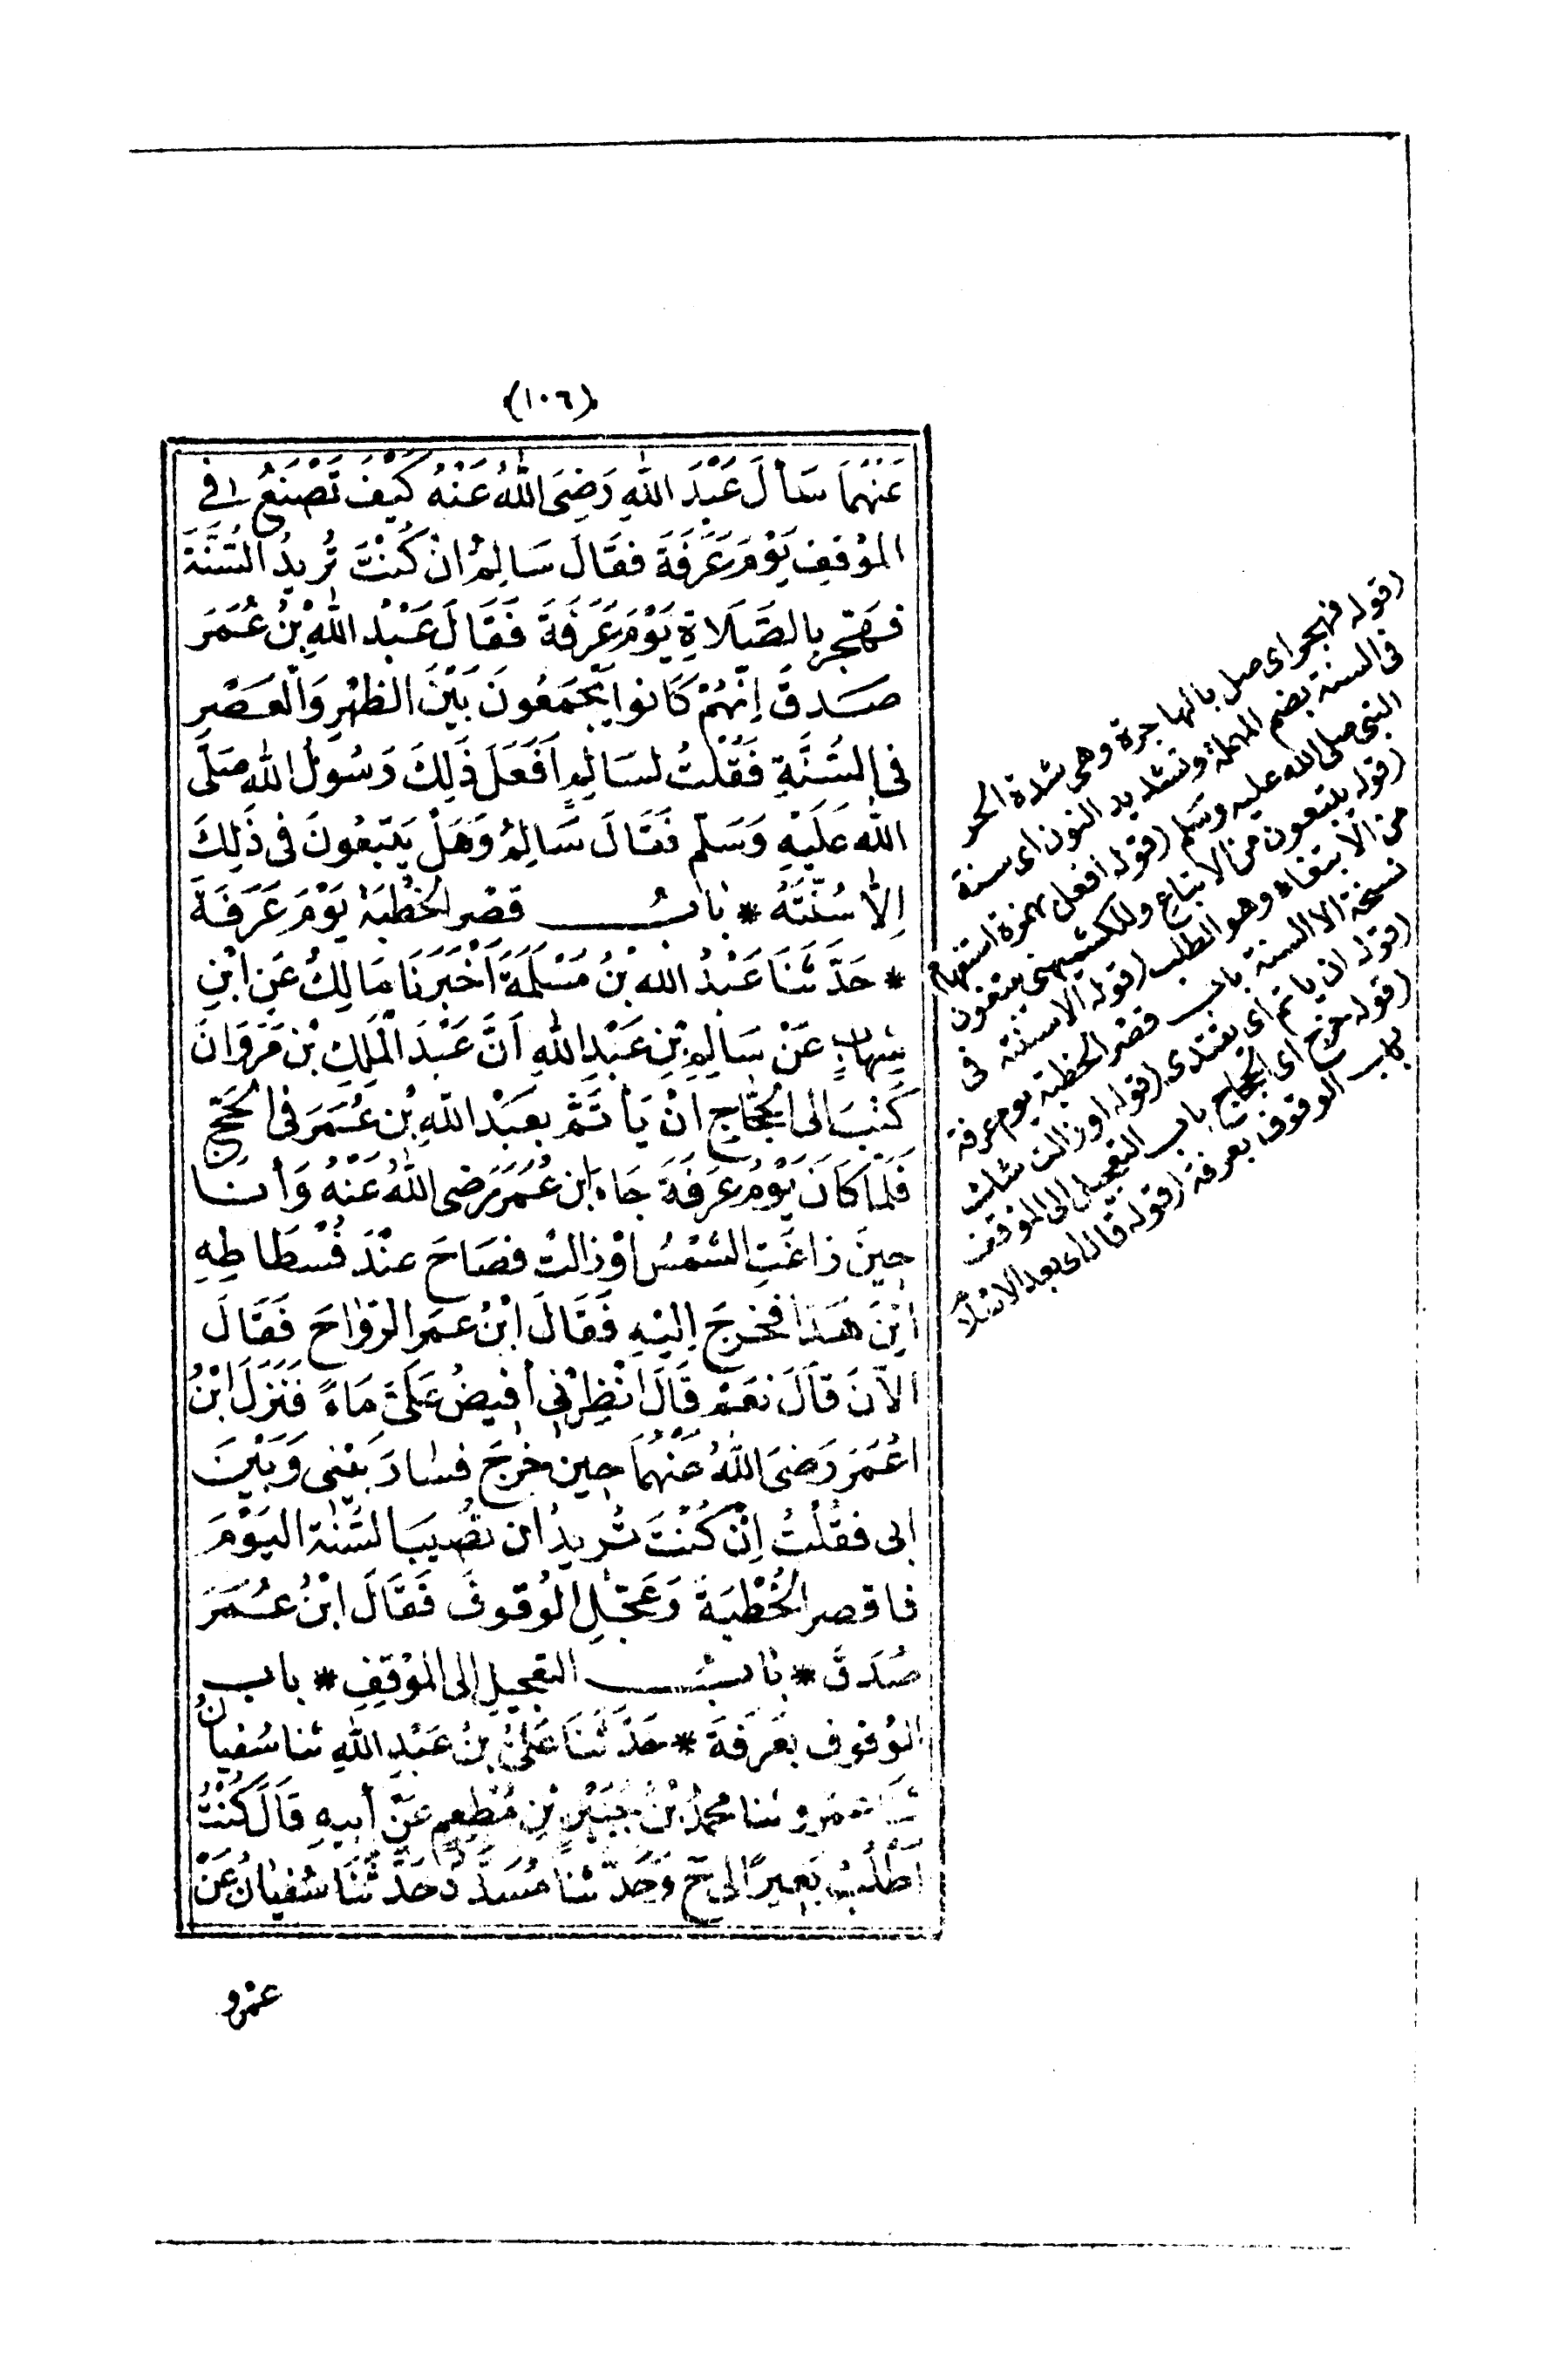 (١٠٦)
عَنْهُمَا سَأَلَ عَبْدَ اللهِ رَضِيَ اللهُ عَنْهُ كَيْفَ تَصْنَعُ فى
المَوْقِفِ يَوْمَ عَرَفَةَ فَقَالَ سَالِمٌ انْ كُنْتَ تُرِيدُ السُّنَّةَ
فَهَجِّرْ بِالصَّلَاةِ يَوْمَ عَرَفَةَ فَقَالَ عَبْدُ اللهِ بْنُ عُمَرَ
صَدَقَ اِنَّهُمْ كَانُوا يَجْمَعُونَ بَيْنَ الظُّهْرِ وَالْعَصْرِ
فى السُّنَّةِ فَقُلْتُ لِسَالِمٍ اَفَعَلَ ذَلِكَ رَسُولُ اللهِ صَلَّى
اللهُ عَلَيْهِ وَسَلَّمَ فَقَالَ سَالِمٌ وَهَلْ يَتَّبِعُونَ فى ذَلِكَ
اِلَّا سُنَّتَهُ * بَابُ قَصْرِ الخُطْبَةِ يَوْمَ عَرَفَةَ
* حَدَّثَنَا عَبْدُ اللهِ بْنُ مَسْلَمَةَ اَخْبَرَنَا مَالِكٌ عَنِ ابْنِ
شِهَابٍ عَنْ سَالِمِ بْنِ عَبْدِ اللهِ اَنَّ عَبْدَ الْمَلِكِ بْنَ مَرْوَانَ
كَتَبَ الى الحَجَّاجِ اَنْ يَأْتَمَّ بِعَبْدِ اللهِ بْنِ عُمَرَ فى الحَجِّ
فَلَمَّا كَانَ يَوْمُ عَرَفَةَ جَاءَ ابْنُ عُمَرَ رَضِى اللهُ عَنْهُ وَأَنَا
حِينَ زَاغَتِ الشَّمْسُ اوْ زَالَتْ فَصَاحَ عِنْدَ فُسْطَاطِهِ
اَيْنَ هَذَا فَخَرَجَ اِلَيْهِ فَقَالَ ابْنُ عُمَرَ الرَّوَاحَ فَقَالَ
الآنَ قَالَ نَعَمْ قَالَ انْظِرْنِى أُفِيضُ عَلَىَّ مَاءً فَنَزَلَ ابْنُ
عُمَرَ رَضِىَ اللهُ عَنْهُمَا حِينَ خَرَجَ فَسَارَ بَيْنِى وَبَيْنَ
ابى فَقُلْتُ اِنْ كُنْتَ تُرِيدُ اَنْ تُصِيبَ السُّنَّةَ اليَوْمَ
فَاقْصُرِ الخُطْبَةَ وَعَجِّلِ الوُقُوفَ فَقَالَ ابْنُ عُمَرَ
صَدَقَ * بَابُ التعجيلِ الى المَوْقِفِ * باب
الوُقوفِ بِعَرَفَةَ * حَدَّثَنَا عَلِىُّ بْنُ عَبْدِ اللهِ ثنا سُفيانُ
ثنا عَمرو ثنا محمدُ بْنُ جُبَيْرِ بْنِ مُطْعِمٍ عَنْ أَبِيهِ قَالَ كُنْتُ
اَطْلُبُ بَعِيرًا لى ح وَحَدَّثنا مُسَدَّدٌ حَدَّثَنَا سُفيانُ عَنْ
عمْرو
(قوله فهجر اى صل بالهاجرة وهى شدة الحر
فى السنة بضم المهملة وتشديد النون اى سنة
النبى صلى الله عليه وسلم (قوله افعل بهمزة استفهام
(قوله يتبعون من الاتباع وللكشميهنى يبتغون
من الابتغاء وهو الطلب (قوله الا سنته فى
نسخة الا السنة باب قصر الخطبة يوم عرفة
(قوله ان ياتم اى يقتدى (قوله او زالت شك
(قوله خرج اى الحجاج باب التعجيل الى الموقف
باب الوقوف بعرفة (قوله قال اى بعد